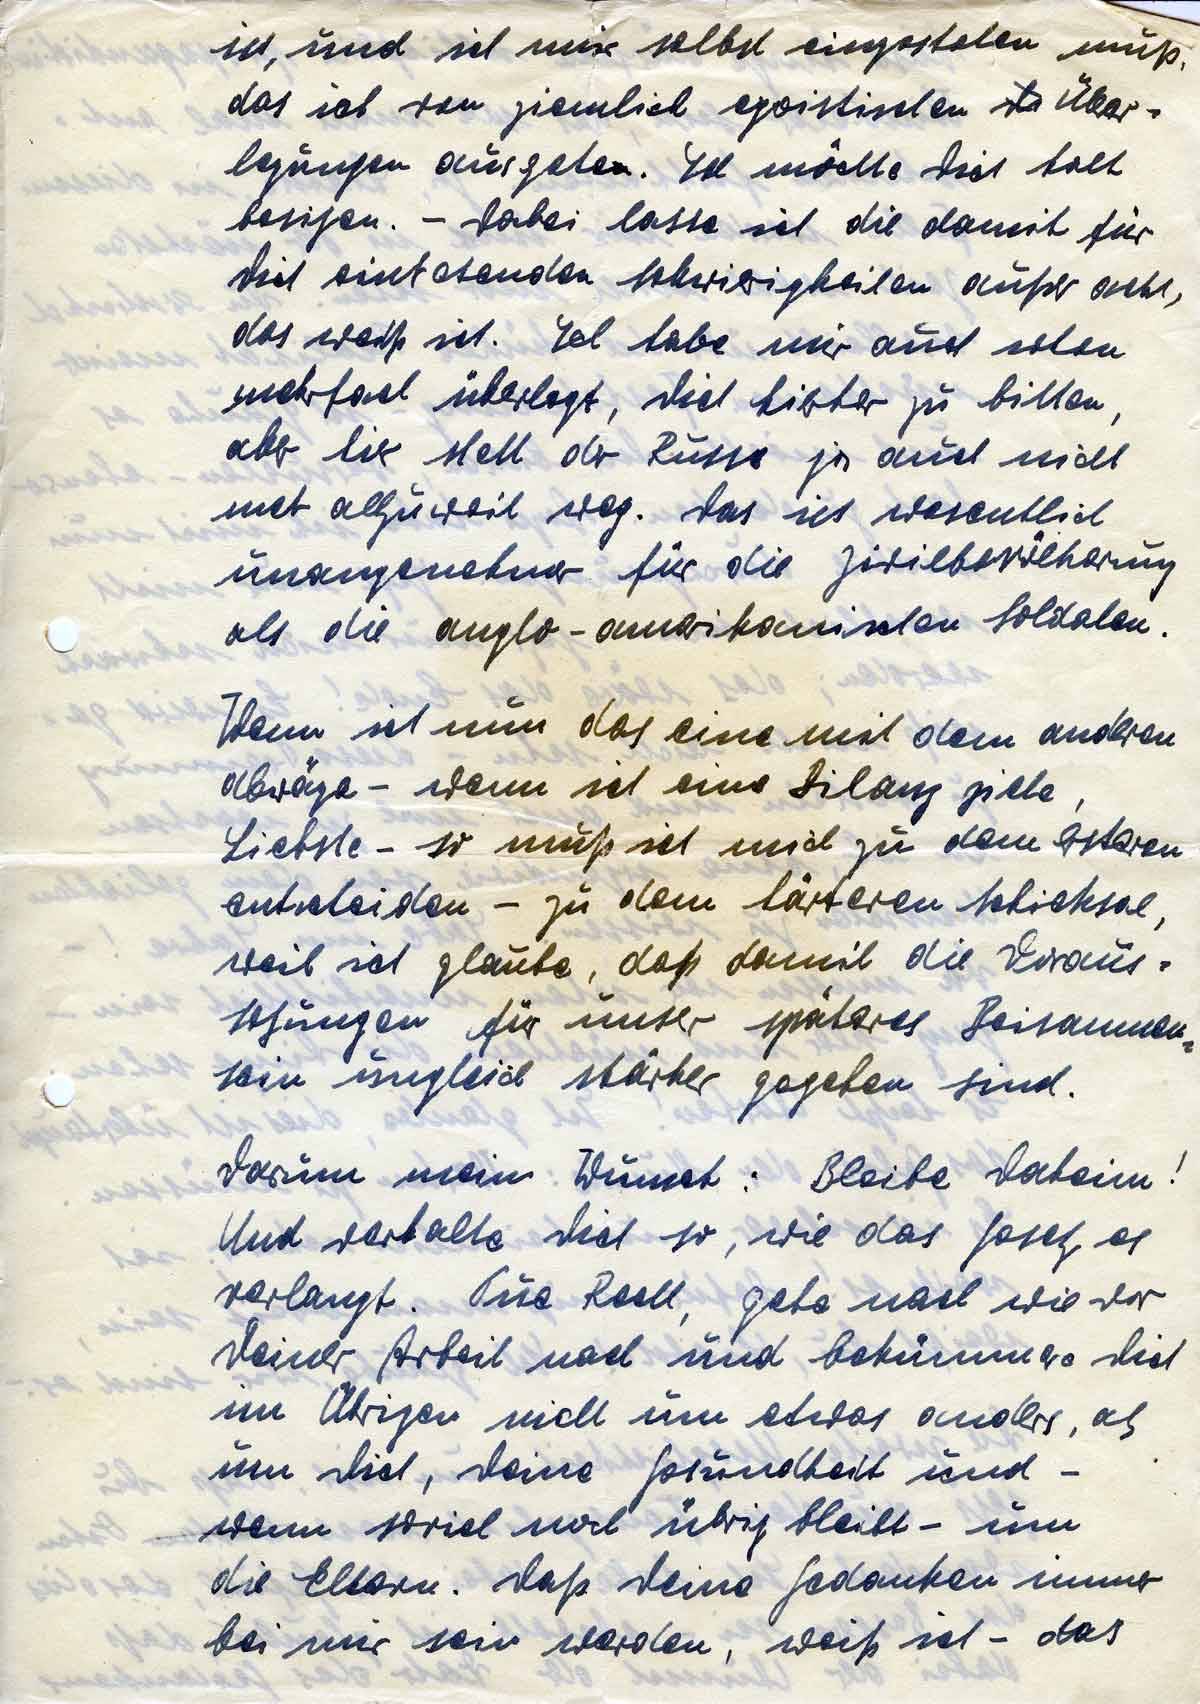 ist, und ich mir selbst eingestehen muß,
das ich von ziemlich egoistischen Über-
legungen ausgehen. Ich möchte Dich halt
besitzen. – Dabei lasse ich die damit für
Dich entstehenden Schwierigkeiten außer acht,
das weiß ich. Ich habe mir auch schon
mehrfach überlegt, Dich hierher zu bitten,
aber hier steht der Russe ja auch nicht
mehr allzuweit weg. Das ist wesentlich
unangenehmer für die Zivilbevölkerung
als die anglo-amerikanischen Soldaten.
Wenn ich nun das eine mit dem anderen
abwäge – wenn ich eine Bilanz ziehe,
Liebste – so muß ich mich zu dem ersteren
entscheiden – zu dem härteren Schicksal,
weil ich glaube, daß damit die Voraus-
setzungen für unser späteres Beisammen-
sein ungleich stärker gegeben sind.
Darum mein Wunsch: Bleibe Daheim!
Und verhalte Dich so, wie das Gesetz es
verlangt. Tue Recht, gehe nach wie vor
Deiner Arbeit nach und bekümmere Dich
im Übrigen nicht um etwas anders, als
um Dich, Deine Gesundheit und –
wenn soviel noch übrig bleibt – um
die Eltern. Daß Deine Gedanken immer
bei mir sein werden, weiß ich – das